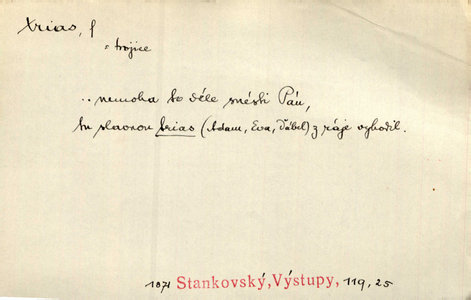 trias, f
= trojice
.. nemoha to déle snésti Pán,
tu slavnou trias (Adam, Eva, Ďábel) z ráje vyhodil.
1871 Stankovský, Výstupy, 119, 25